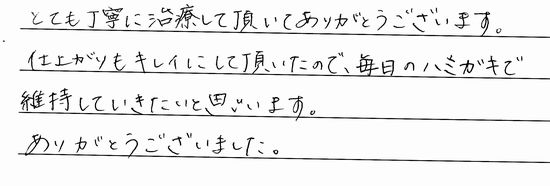 とても丁寧に治療して頂いてありがとうございます。
仕上がりもキレイにして頂いたので、毎日のハミガキで
維持していきたいと思います。
ありがとうございました。